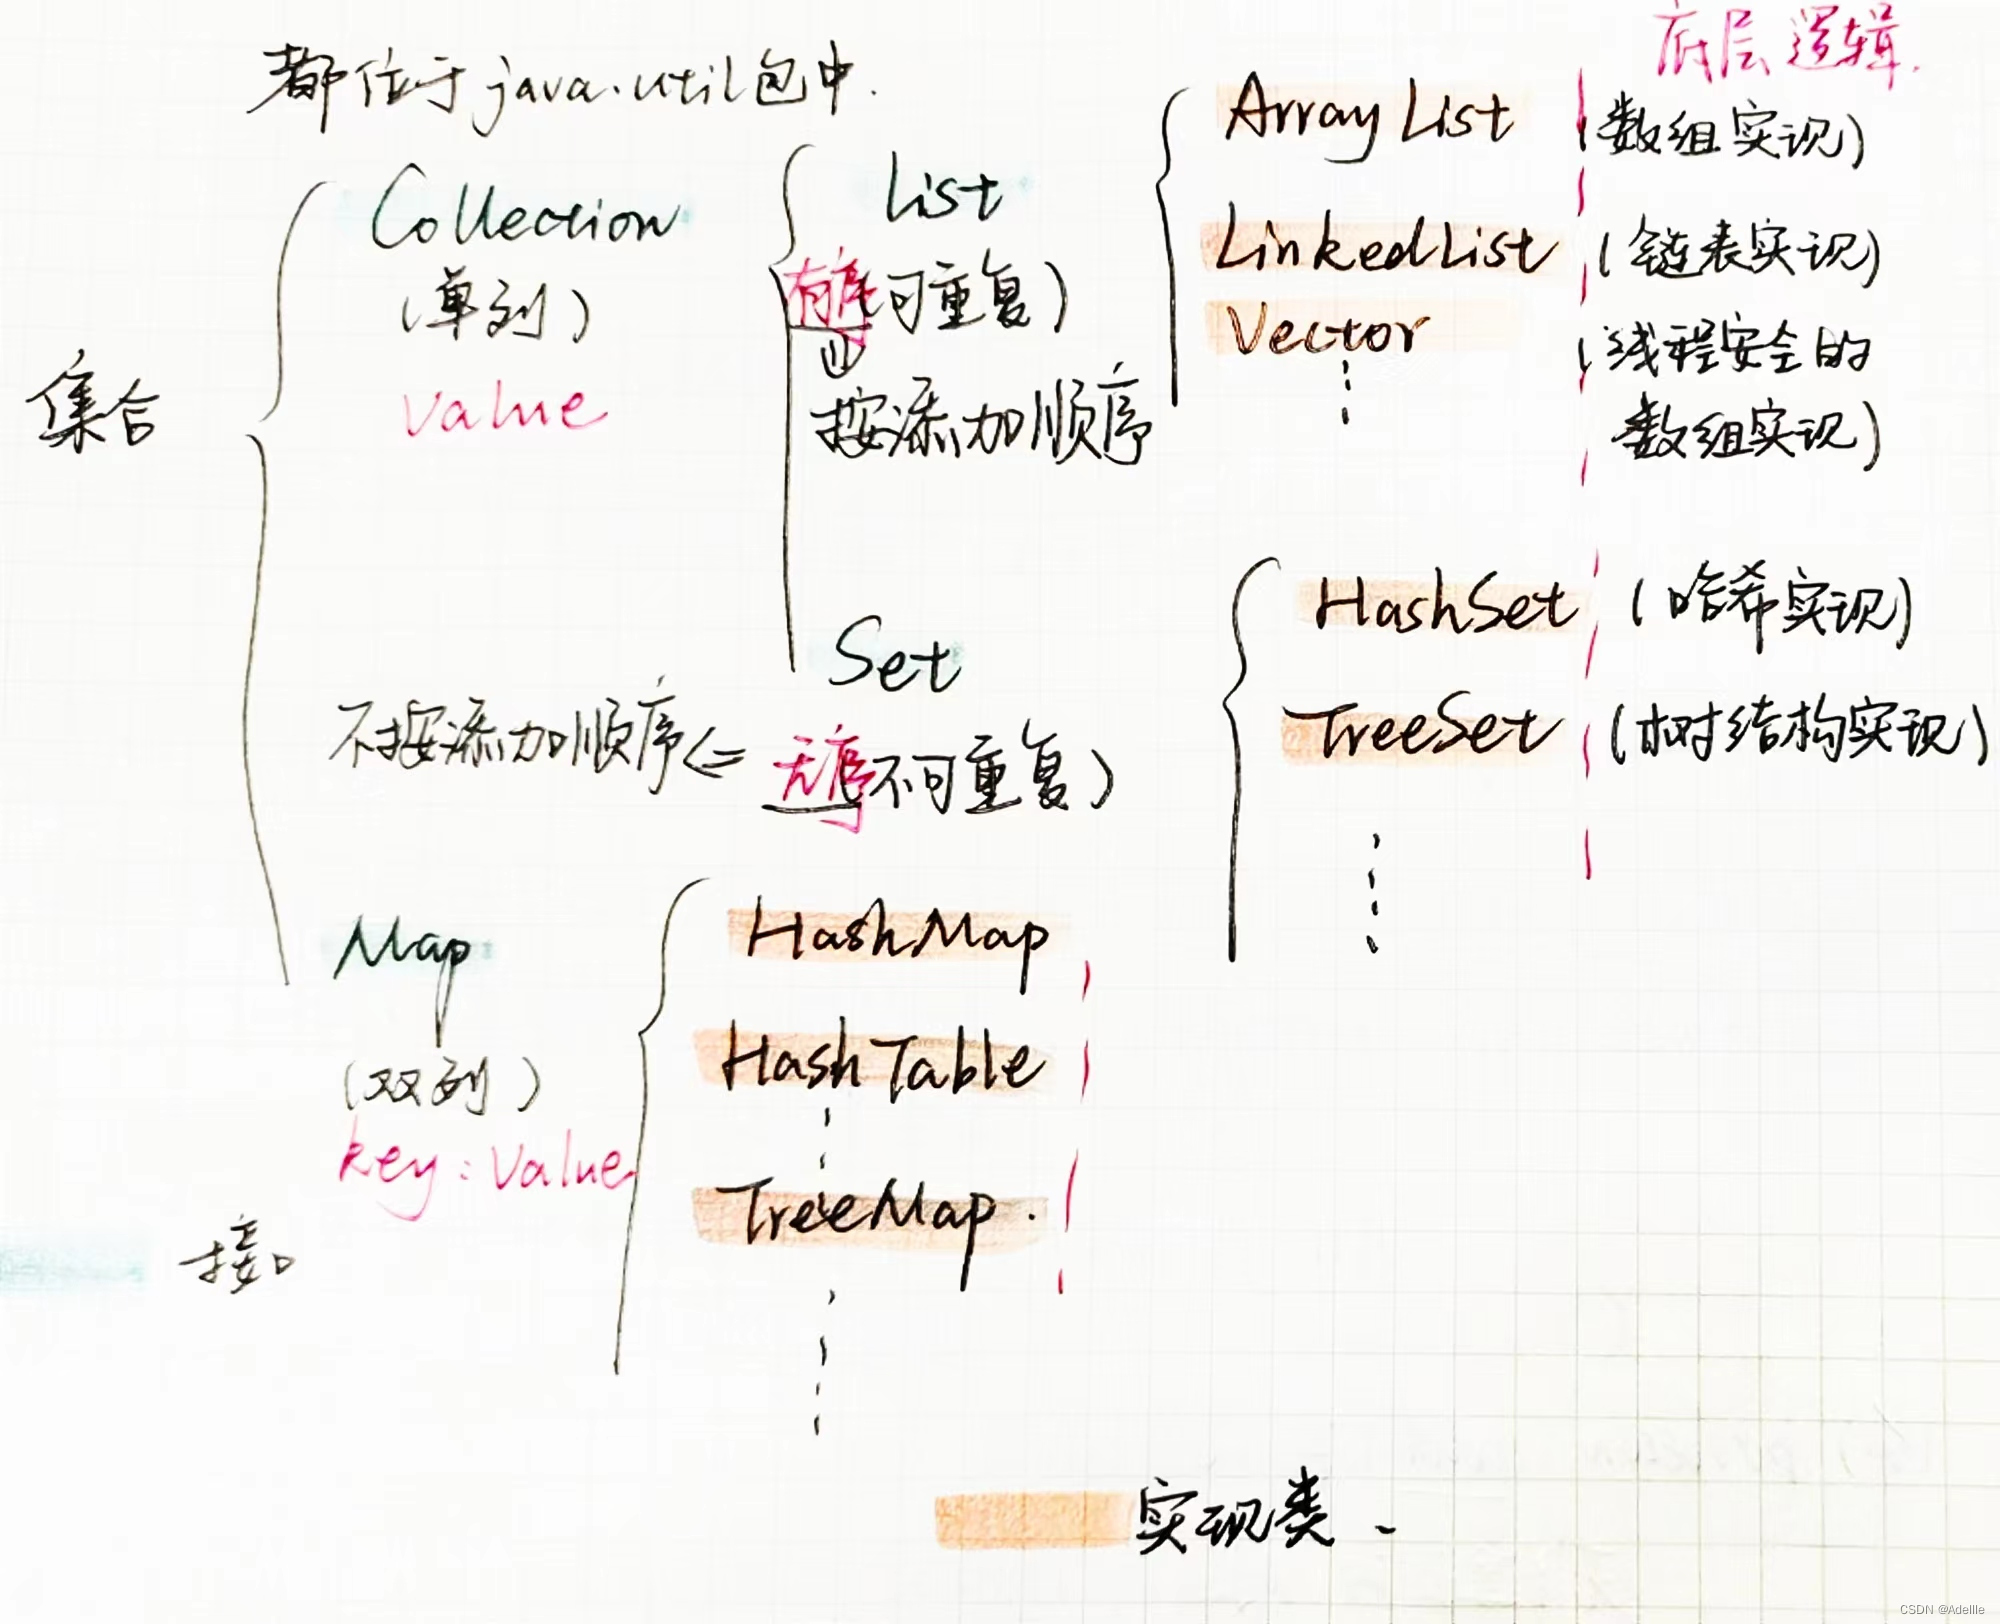 底层逻辑.
都位于java.util包中.
ArrayList (数组实现)
Collection
List
LinkedList (链表实现)
(单列)
有序可重复)
Vector (线程安全的
数组实现)
value
按添加顺序
集合
HashSet (哈希实现)
Set
TreeSet (树结构实现)
不按添加顺序<= 无序不可重复)
Map
HashMap
(双列)
HashTable
key:value
TreeMap.
接口
实现类
CSDN @Adellle